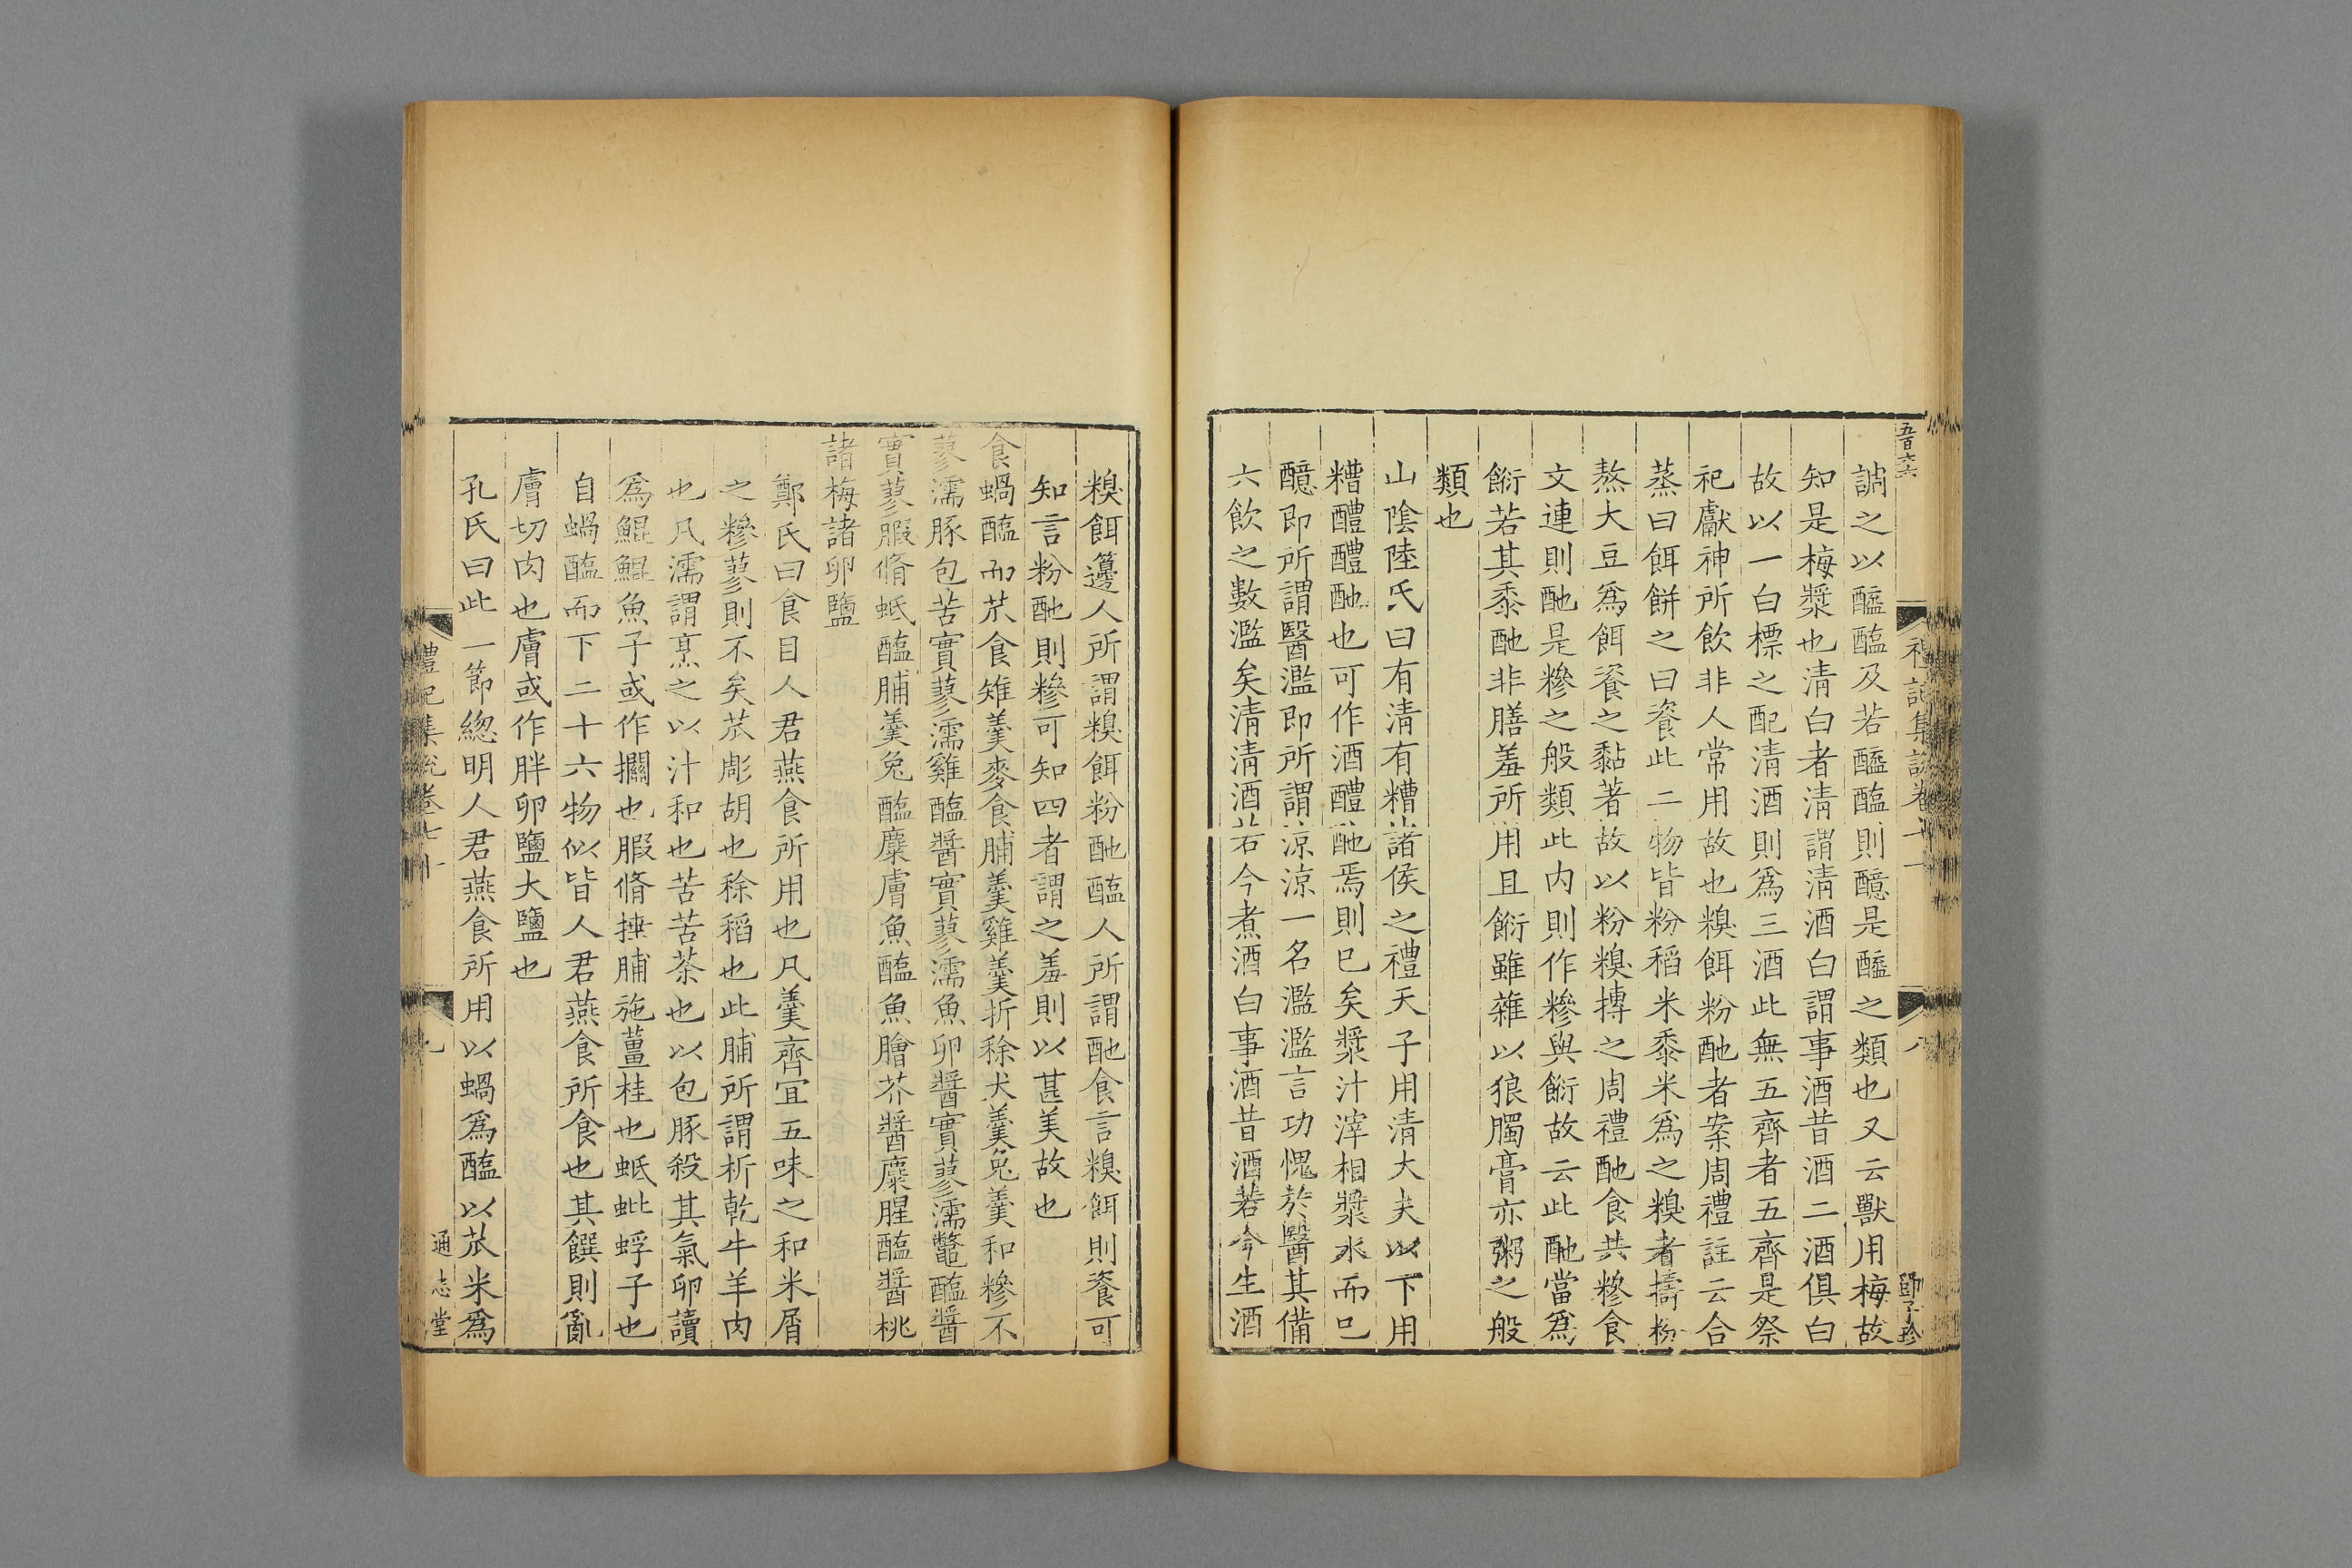 五百六六
調之以醯醢及若醯醢則醷是醯之類也又云獸用梅故
知是梅漿也清白者清謂清酒白謂事酒昔酒二酒俱白
故以一白標之配清酒則爲三酒此無五齊者五齊是祭
祀獻神所飲非人常用故也糗餌粉酏者案周禮註云合
蒸曰餌餅之曰餈此二物皆粉稻米黍米爲之糗者擣粉
熬大豆爲餌餈之黏著故以粉糗摶之周禮酏食共糝食
文連則酏是糝之般類此内則作糝與䬳故云此酏當爲
䬳若其黍酏非膳羞所用且䬳雖雜以狼臅膏亦粥之般
類也
山陰陸氏曰有清有糟諸侯之禮天子用清大夫以下用
糟醴醴酏也可作酒醴酏焉則已矣漿汁滓相漿水而已
醷即所謂醫濫即所謂涼涼一名濫濫言功愧於醫其備
六飲之數濫矣清清酒若今煮酒白事酒昔酒若今生酒
糗餌籩人所謂糗餌粉酏醢人所謂酏食言糗餌則餈可
知言粉酏則糝可知四者謂之羞則以甚美故也
食蝸醢而苽食雉羹麥食脯羹雞羹折稌犬羹兔羹和糝不
蓼濡豚包苦實蓼濡雞醢醬實蓼濡魚卵醬實蓼濡鼈醢醬
實蓼腶脩蚳醢脯羹兔醢麋膚魚醢魚膾芥醬麋腥醢醬桃
諸梅諸卵鹽
鄭氏曰食目人君燕食所用也凡羹齊宜五味之和米屑
之糝蓼則不矣苽彫胡也稌稻也此脯所謂析乾牛羊肉
也凡濡謂烹之以汁和也苦苦荼也以包豚殺其氣卵讀
爲鯤鯤魚子或作攔也腶脩捶脯施薑桂也蚳蚍蜉子也
自蝸醢而下二十六物似皆人君燕食所食也其饌則亂
膚切肉也膚或作胖卵鹽大鹽也
孔氏曰此一節緫明人君燕食所用以蝸爲醢以苽米爲
禮記集說卷七十
九
通志堂